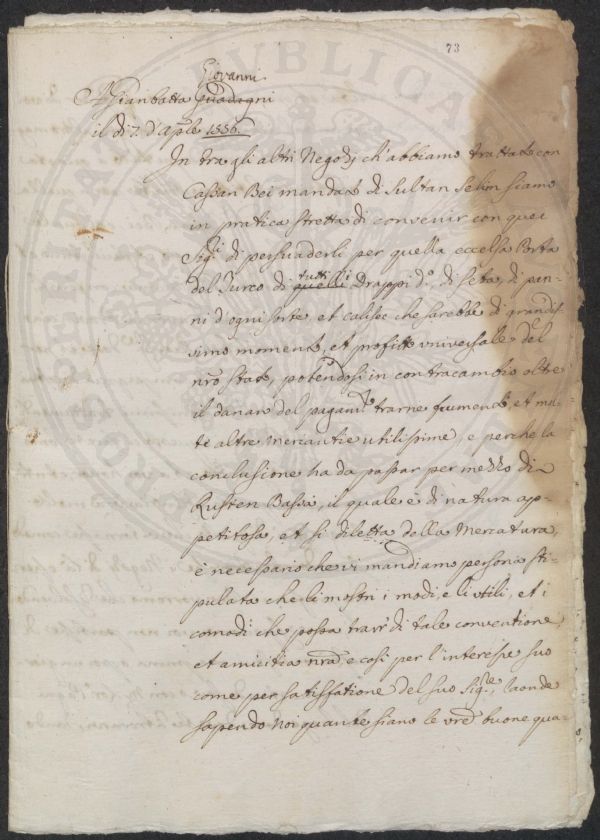 73
Giovanni
A Gianbatta Guadagni
il dì 7. d'Aple 1556.
In tra gli altri Negozj ch'abbiamo trattato con
Cassan Bei mandato di Sultan Selim siamo
in pratica stretta di convenir con quei
Sigi. di persuaderli per quella eccelsa Porta
del Turco di quelli tutti li Drappi d'o, di seta, di pan-
ni d'ogni sorte, et calisee che sarebbe di grandis-
simo momento, et profitto universale del
nro Stato, potendosi in contracambio oltre
il danaro del pagamto. trarne frumento et mol-
te altre Mercantie utilissime, e perche la
conclusione ha da passar per mezzo di
Rusten Bassa, il quale è di natura ap-
petitosa, et si diletta della Mercatura,
è necessario che vi mandiamo persona sti-
pulata che li mostri i modi, e li utili, et i
comodi che possa trarr' di tale conventione,
et amicitia nra, e così per l'interesse suo
come per satisfatione del suo Sige., laonde
sapendo Noi quante siano le vre buone qua-